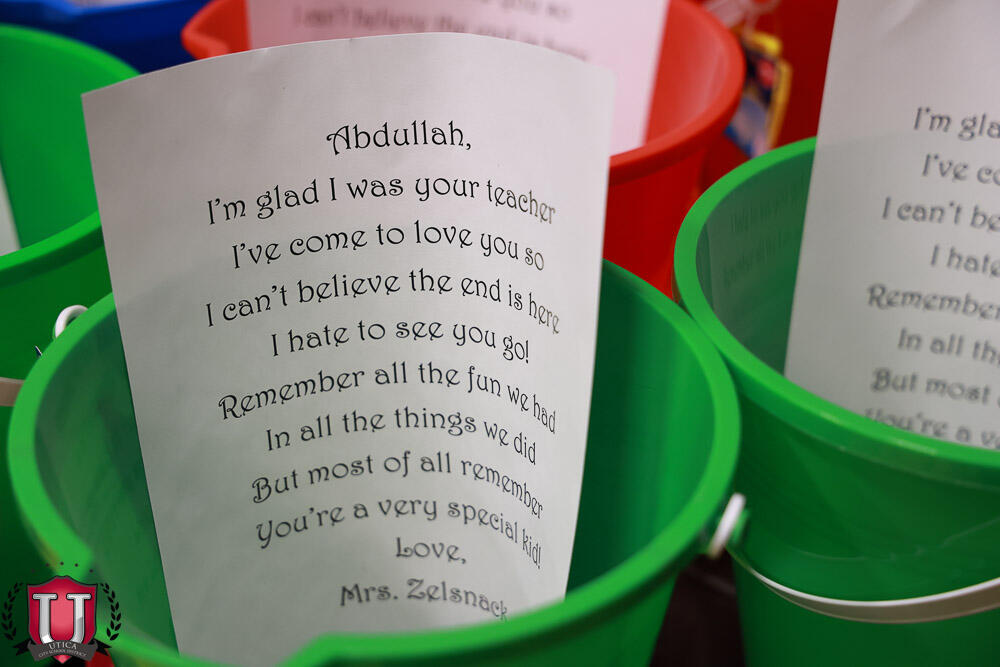 I can't believe the end is here
Abdullah,
I'm glad I was your teacher
I've come to love you so
I can't believe the end is here
I hate to see you go!
Remember all the fun we had
In all the things we did
But most of all remember
You're a very special kid!
Love,
Mrs. Zelsnack
I'm gla
I've co
I can't be
I hate
Remember
In all thi
But most
You're a v
U
UTICA
CITY SCHOOL DISTRICT